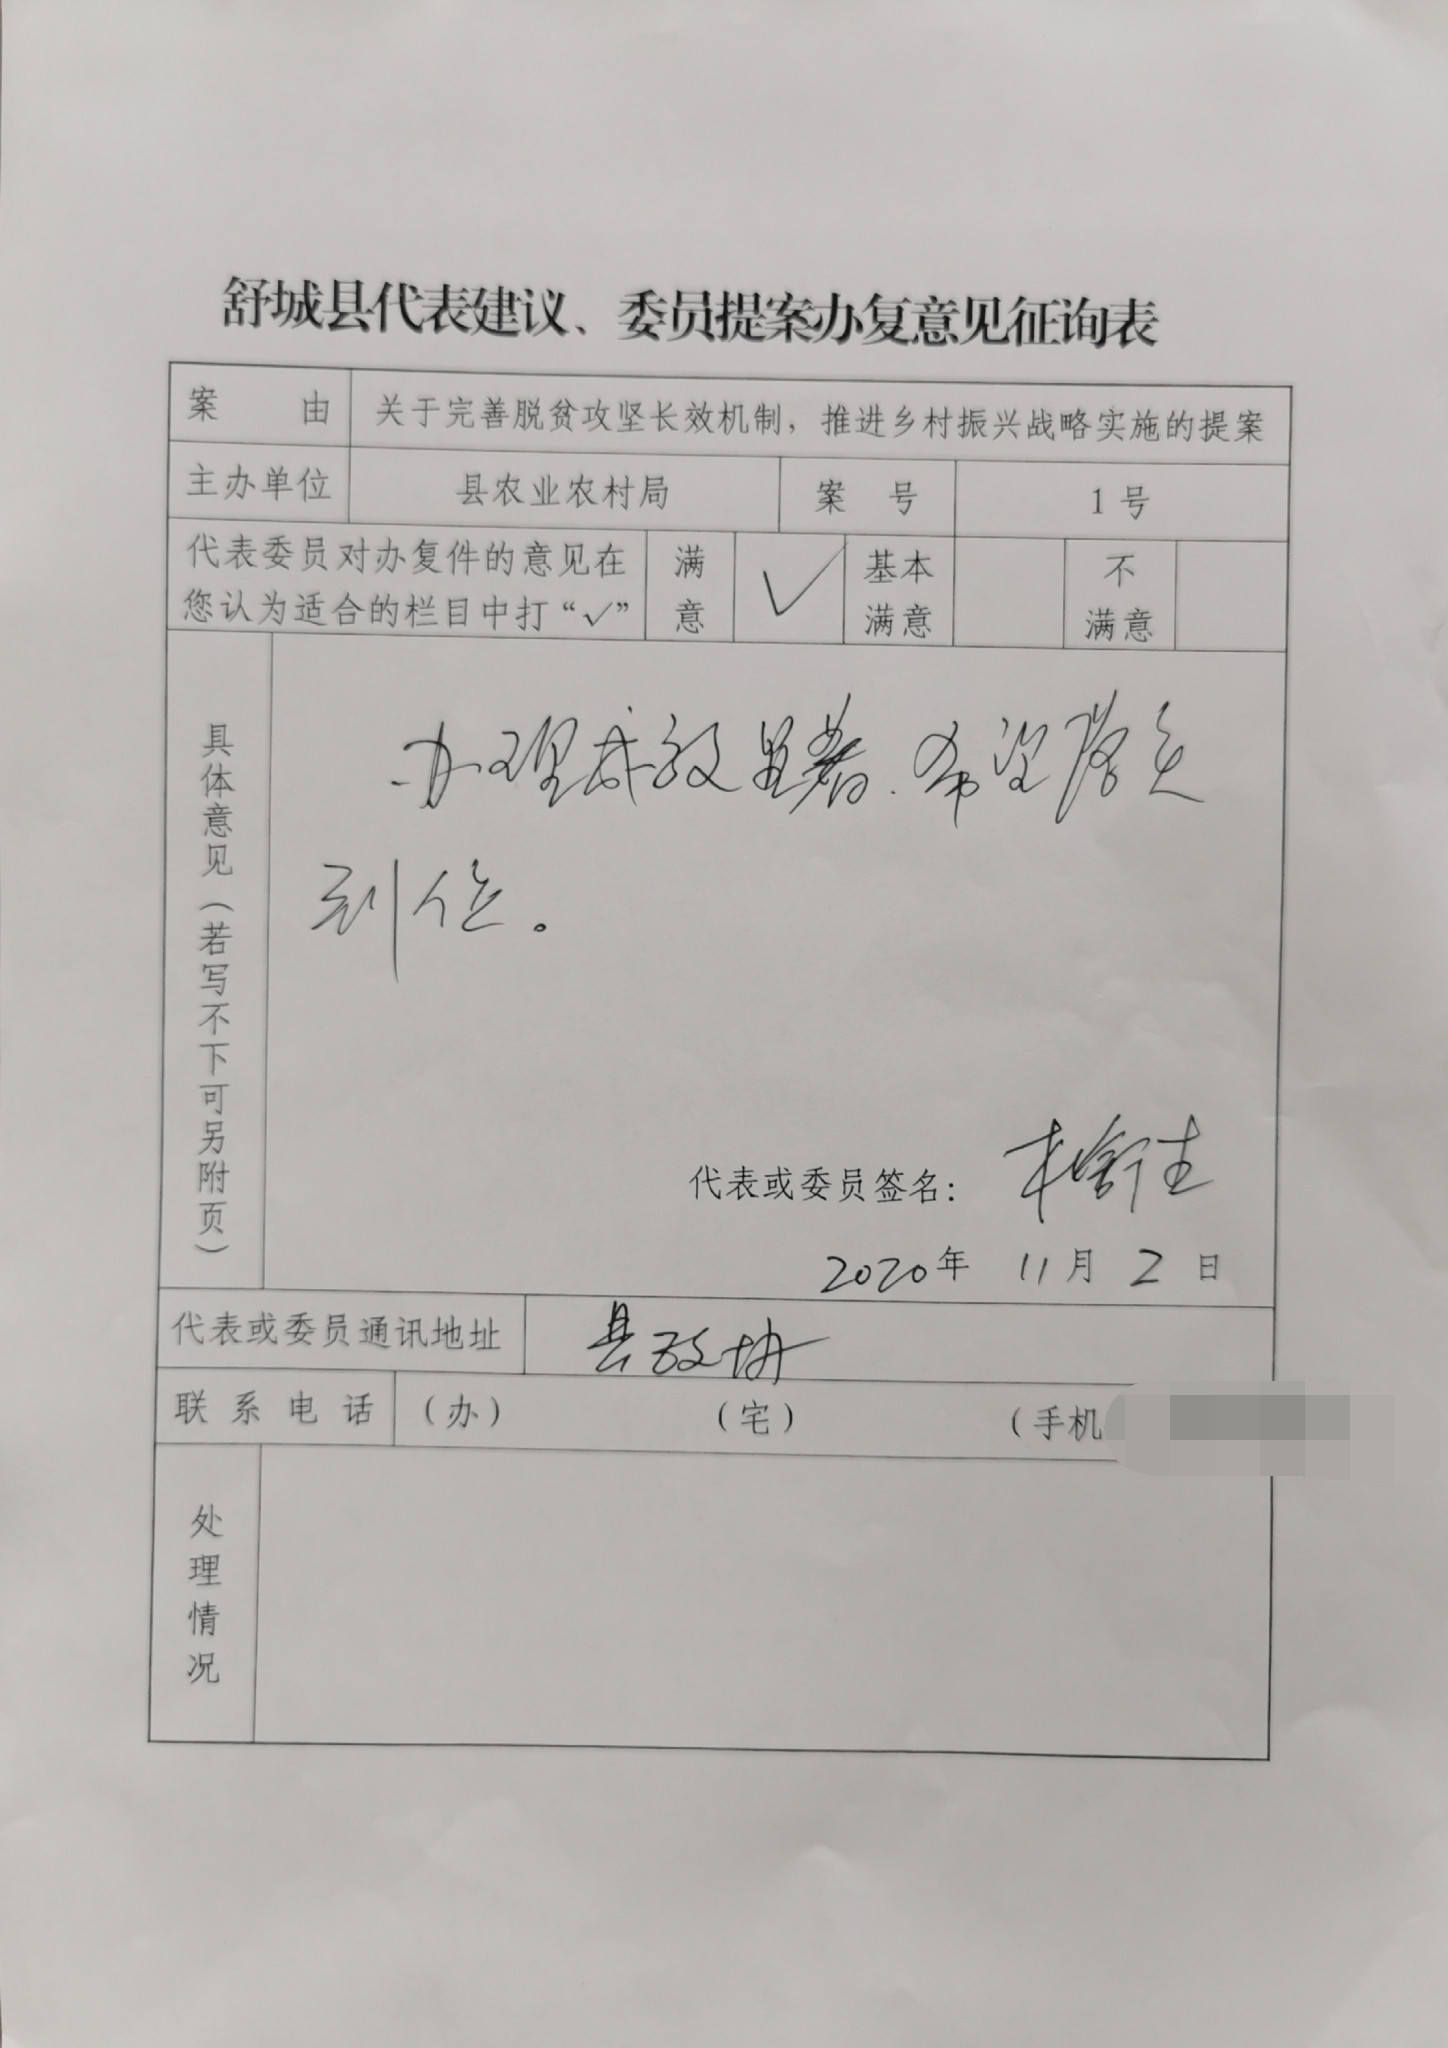 舒城县代表建议、委员提案办复意见征询表
案由 关于完善脱贫攻坚长效机制，推进乡村振兴战略实施的提案
主办单位 县农业农村局 案号 1号
代表委员对办复件的意见在您认为适合的栏目中打“✓” 满意 ✓ 基本满意 不满意
具体意见（若写不下可另附页）
办理成效显著.希望落实
到位。
代表或委员签名：
2020年 11月 2日
代表或委员通讯地址 县政协
联系电话 （办） （宅） （手机
处理情况